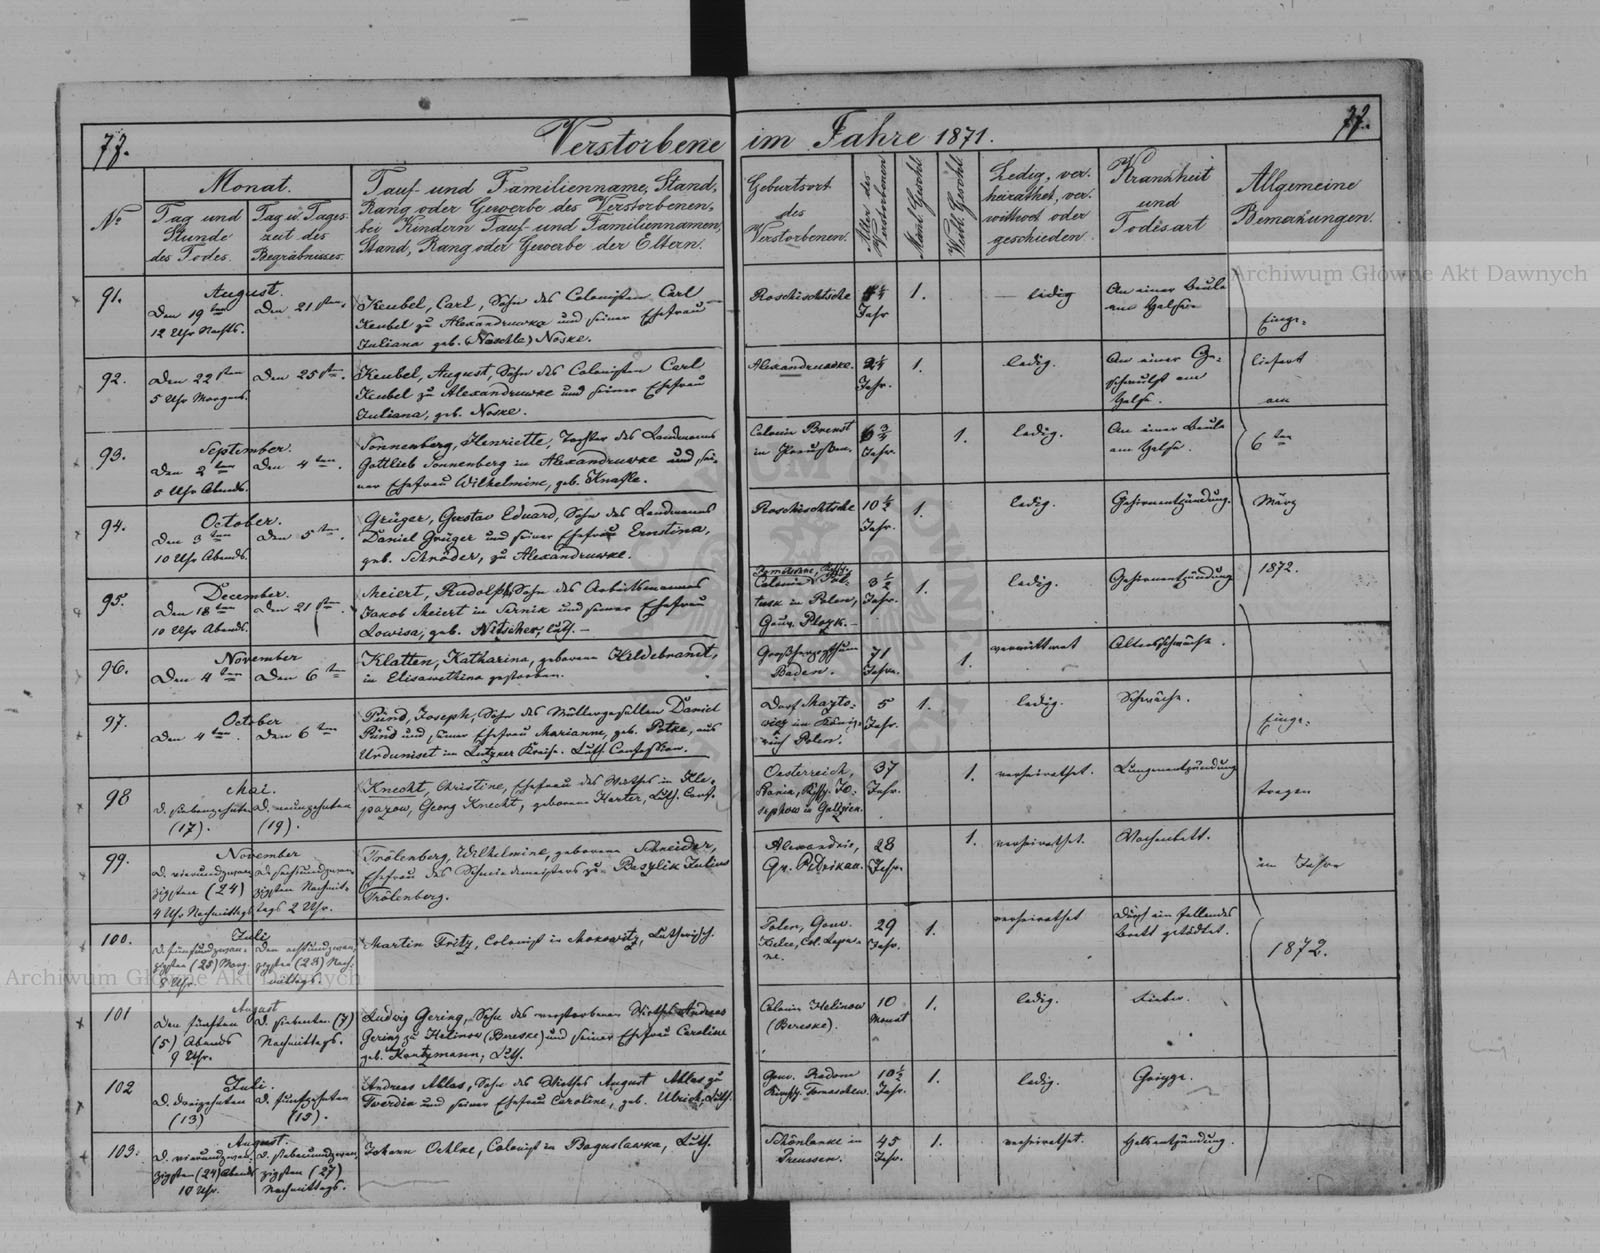 77. Verstorbene im Jahre 1871. 77.
№
Monat.
Tag und
Stunde
des Todes.
Tag u. Tages-
zeit des
Begräbnisses.
Tauf- und Familienname, Stand,
Rang oder Gewerbe des Verstorbenen,
bei Kindern Tauf- und Familiennamen,
Stand, Rang oder Gewerbe der Eltern.
Geburtsort
des
Verstorbenen.
Alter des
Verstorbenen
Männl. Geschl.
Weibl. Geschl.
Ledig, ver-
heirathet, ver-
wittwet oder
geschieden.
Krankheit
und
Todesart
Allgemeine
Bemerkungen.
91.
August.
Den 19ten
12 Uhr Nachts.
Den 21sten.
Keubel, Carl, Sohn des Colonisten Carl
Keubel zu Alexandruwka und seiner Ehefrau
Juliana geb. Noske.
Roschischtsche
Jahr
1.
ledig
An einer Beule
am Halse
92.
Den 22sten
5 Uhr Morgens.
Den 25sten.
Keubel, August, Sohn des Colonisten Carl
Keubel zu Alexandruwke und seiner Ehefrau
Juliana, geb. Noske.
Alexandruwke.
2¼
Jahr.
1.
ledig.
An einer Ge-
schwulst am
Halse.
93.
September.
Den 2ten
5 Uhr Abends.
Den 4ten.
Sonnenberg, Henriette, Tochter des Landmanns
Gottlieb Sonnenberg in Alexandruwke und sei-
ner Ehefrau Wilhelmine, geb. Knaste.
Colonie
in
6¾
Jahr.
1.
ledig.
An einer Beule
am Halse.
94.
October.
Den 3ten
10 Uhr Abends.
Den 5ten.
Grüger, Gustav Eduard, Sohn des Landmanns
Daniel Grüger und seiner Ehefrau Ernestina,
geb. Schröder, zu Alexandruwke.
Roschischtsche
10½
Jahr.
1.
ledig.
Gehirnentzündung.
95.
December.
Den 18ten
10 Uhr Abends.
Den 21sten.
Meiert, Rudolph, Sohn des Arbeitsmannes
Jakob Meiert in Sernik und seiner Ehefrau
Lowisa, geb. Nitscher, luth.
Colonie Pul-
tusk in Polen,
Gouv. Plozk.
3½
Jahr.
1.
ledig.
Gehirnentzündung
Einge-
liefert
am
6ten
März
1872.
96.
November
Den 4ten
Den 6ten
Klatten, Katharina, geborene Hildebrandt,
in Elisawethina gestorben.
Großherzogthum
Baden.
71
Jahre.
1.
verwittwet
Altersschwäche.
97.
October
Den 4ten.
Den 6ten
Pünd, Joseph, Sohn des Müllergesellen Daniel
Pünd und seiner Ehefrau Marianne, geb. Petke, aus
Urduniset im Lutzker Kreise. Luth. Confession.
Dorf
im König-
reich Polen.
5
Jahr.
1.
ledig.
Schwäche.
98
Mai.
D. siebenzehnten
(17).
D. neunzehnten
(19).
Knecht, Christine, Ehefrau des Wirthes in Kle-
pazow, Georg Knecht, geborene Harter, Luth. Conf.
Oesterreich,
sephow in Galizien.
37
Jahr.
1.
verheirathet.
Lungenentzündung
99.
November
D. vierundzwan-
zigsten (24)
4 Uhr Nachmittags
D. sechsundzwan-
zigsten Nachmit-
tags 2 Uhr.
Trölenberg, Wilhelmine, geborene Schneider,
Ehefrau des Schmiedemeisters zu Baszlik Julius
Trölenberg.
Alexandrie,
Gr. Petrikau.
28
Jahr.
1.
verheirathet.
Wochenbett.
100.
Juli
D. fünfundzwan-
zigsten (25) Morg.
8 Uhr.
Den achtundzwan-
zigsten (28) Nach-
mittags.
Martin Fritz, Colonist in Mokowitz, Lutherisch.
Polen, Gouv.
Kielce, Col.
29
Jahr.
1.
verheirathet
Durch ein fallendes
Brett getödtet.
101
August
Den fünften
(5) Abends
9 Uhr.
D. siebenten (7)
Nachmittags.
Ludwig Gering, Sohn des verstorbenen Wirthes Andreas
Gering zu Helinow (Bereske) und seiner Ehefrau Caroline
geb. Kontzmann, Luth.
Colonie Helinow
(Bereske).
10
Monat
1.
ledig.
Fieber.
102
Juli.
D. dreizehnten
(13)
D. fünfzehnten
(15).
Andreas Atlas, Sohn des Wirthes August Atlas zu
Twerdin und seiner Ehefrau Caroline, geb. Ulrich, Luth.
Gouv. Radom
Kirchsp. Tomaschow.
10½
Jahr.
1.
ledig.
Grippe.
103.
August.
D. vierundzwan-
zigsten (24) Abends
10 Uhr.
D. siebenundzwan-
zigsten (27)
Nachmittags.
Johann Oehlke, Colonist in Boguslawka, Luth.
Schönlanke in
Preussen.
45
Jahr.
1.
verheirathet.
Halsentzündung.
Einge-
tragen
im Jahre
1872.
Archiwum Główne Akt Dawnych
Archiwum Główne Akt Dawnych